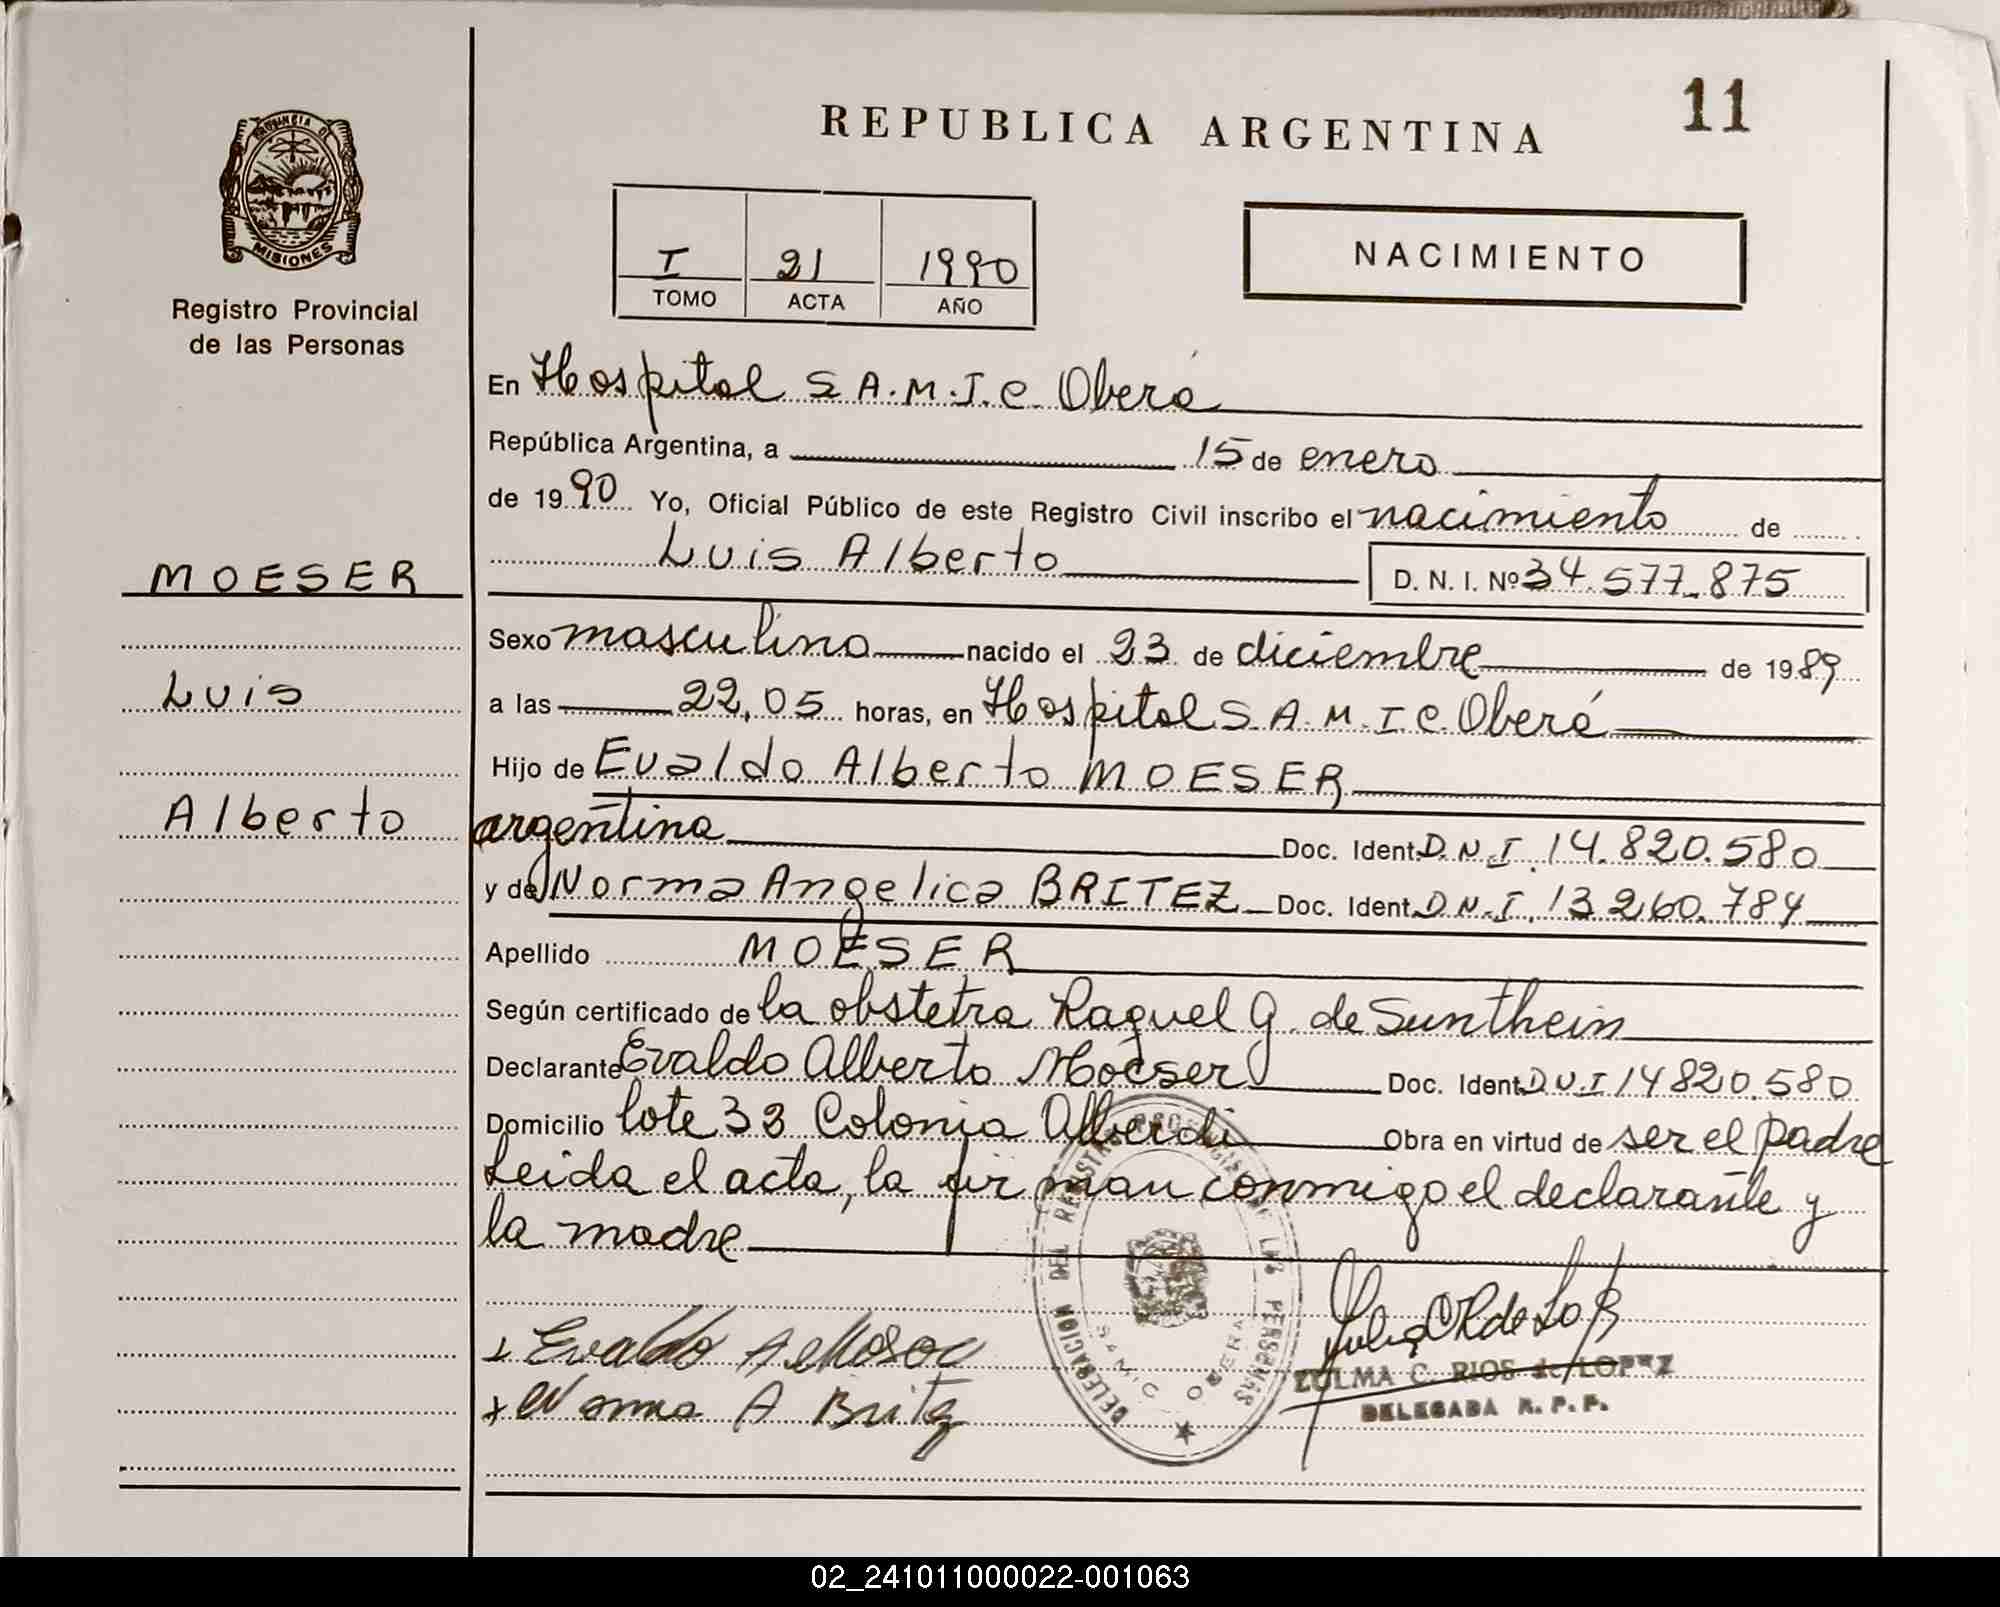 REPUBLICA ARGENTINA
11
PROVINCIA DE
MISIONES
Registro Provincial
de las Personas
I 21 1990
TOMO ACTA AÑO
NACIMIENTO
En Hospital S.A.M.I.C. Oberá
República Argentina, a 15 de enero
de 1990 Yo, Oficial Público de este Registro Civil inscribo el nacimiento de
Luis Alberto D. N. I. Nº 34.577.875
MOESER
Luis
Alberto
Sexo masculino nacido el 23 de diciembre de 1989
a las 22,05 horas, en Hospital S.A.M.I.C. Oberá
Hijo de Evaldo Alberto MOESER
argentina Doc. Ident. D.N.I. 14.820.580
y de Norma Angelica BRITEZ Doc. Ident. D.N.I. 13.260.784
Apellido MOESER
Según certificado de la obstetra Raquel G. de Sunthein
Declarante Evaldo Alberto Moeser Doc. Ident. D.N.I 14820.580
Domicilio lote 33 Colonia Alberdi Obra en virtud de ser el padre
Leida el acta, la firman conmigo el declarante y
la madre
x Evaldo A
x Norma A Britez
DELEGACION DEL REGISTRO PROVINCIAL DE LAS PERSONAS
SAMIC OBERA
ZULMA C. RIOS de LOPEZ
DELEGADA R. P. P.
02_241011000022-001063